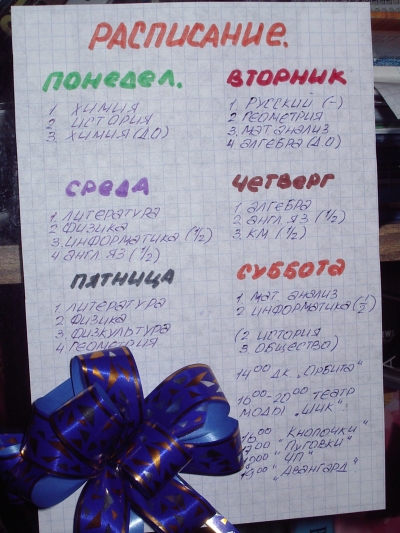 РАСПИСАНИЕ.
ПОНЕДЕЛ.
1. ХИМИЯ
2 ИСТОРИЯ
3. ХИМИЯ (Д.О)
ВТОРНИК
1. РУССКИЙ (–)
2 ГЕОМЕТРИЯ
3. МАТ АНАЛИЗ
4 АЛГЕБРА (Д.О)
СРЕДА
1. ЛИТЕРАТУРА
2 ФИЗИКА
3. ИНФОРМАТИКА (1/2)
4 АНГЛ ЯЗ (1/2)
ЧЕТВЕРГ
1. АЛГЕБРА
2. АНГЛ ЯЗ (1/2)
3. КМ (1/2)
ПЯТНИЦА
1. ЛИТЕРАТУРА
2 ФИЗИКА
3. ФИЗКУЛЬТУРА
4 ГЕОМЕТРИЯ
СУББОТА
1. МАТ. АНАЛИЗ
2 ИНФОРМАТИКА (1/2)
(2 ИСТОРИЯ
3 ОБЩЕСТВО)
14 00 ДК „ОРБИТА"
16 00 - 20 00 ТЕАТР
МОДЫ „ШИК":
16 00 „КНОПОЧКИ"
„ПУГОВКИ"
„ЧП"
19 00 „АВАНГАРД"